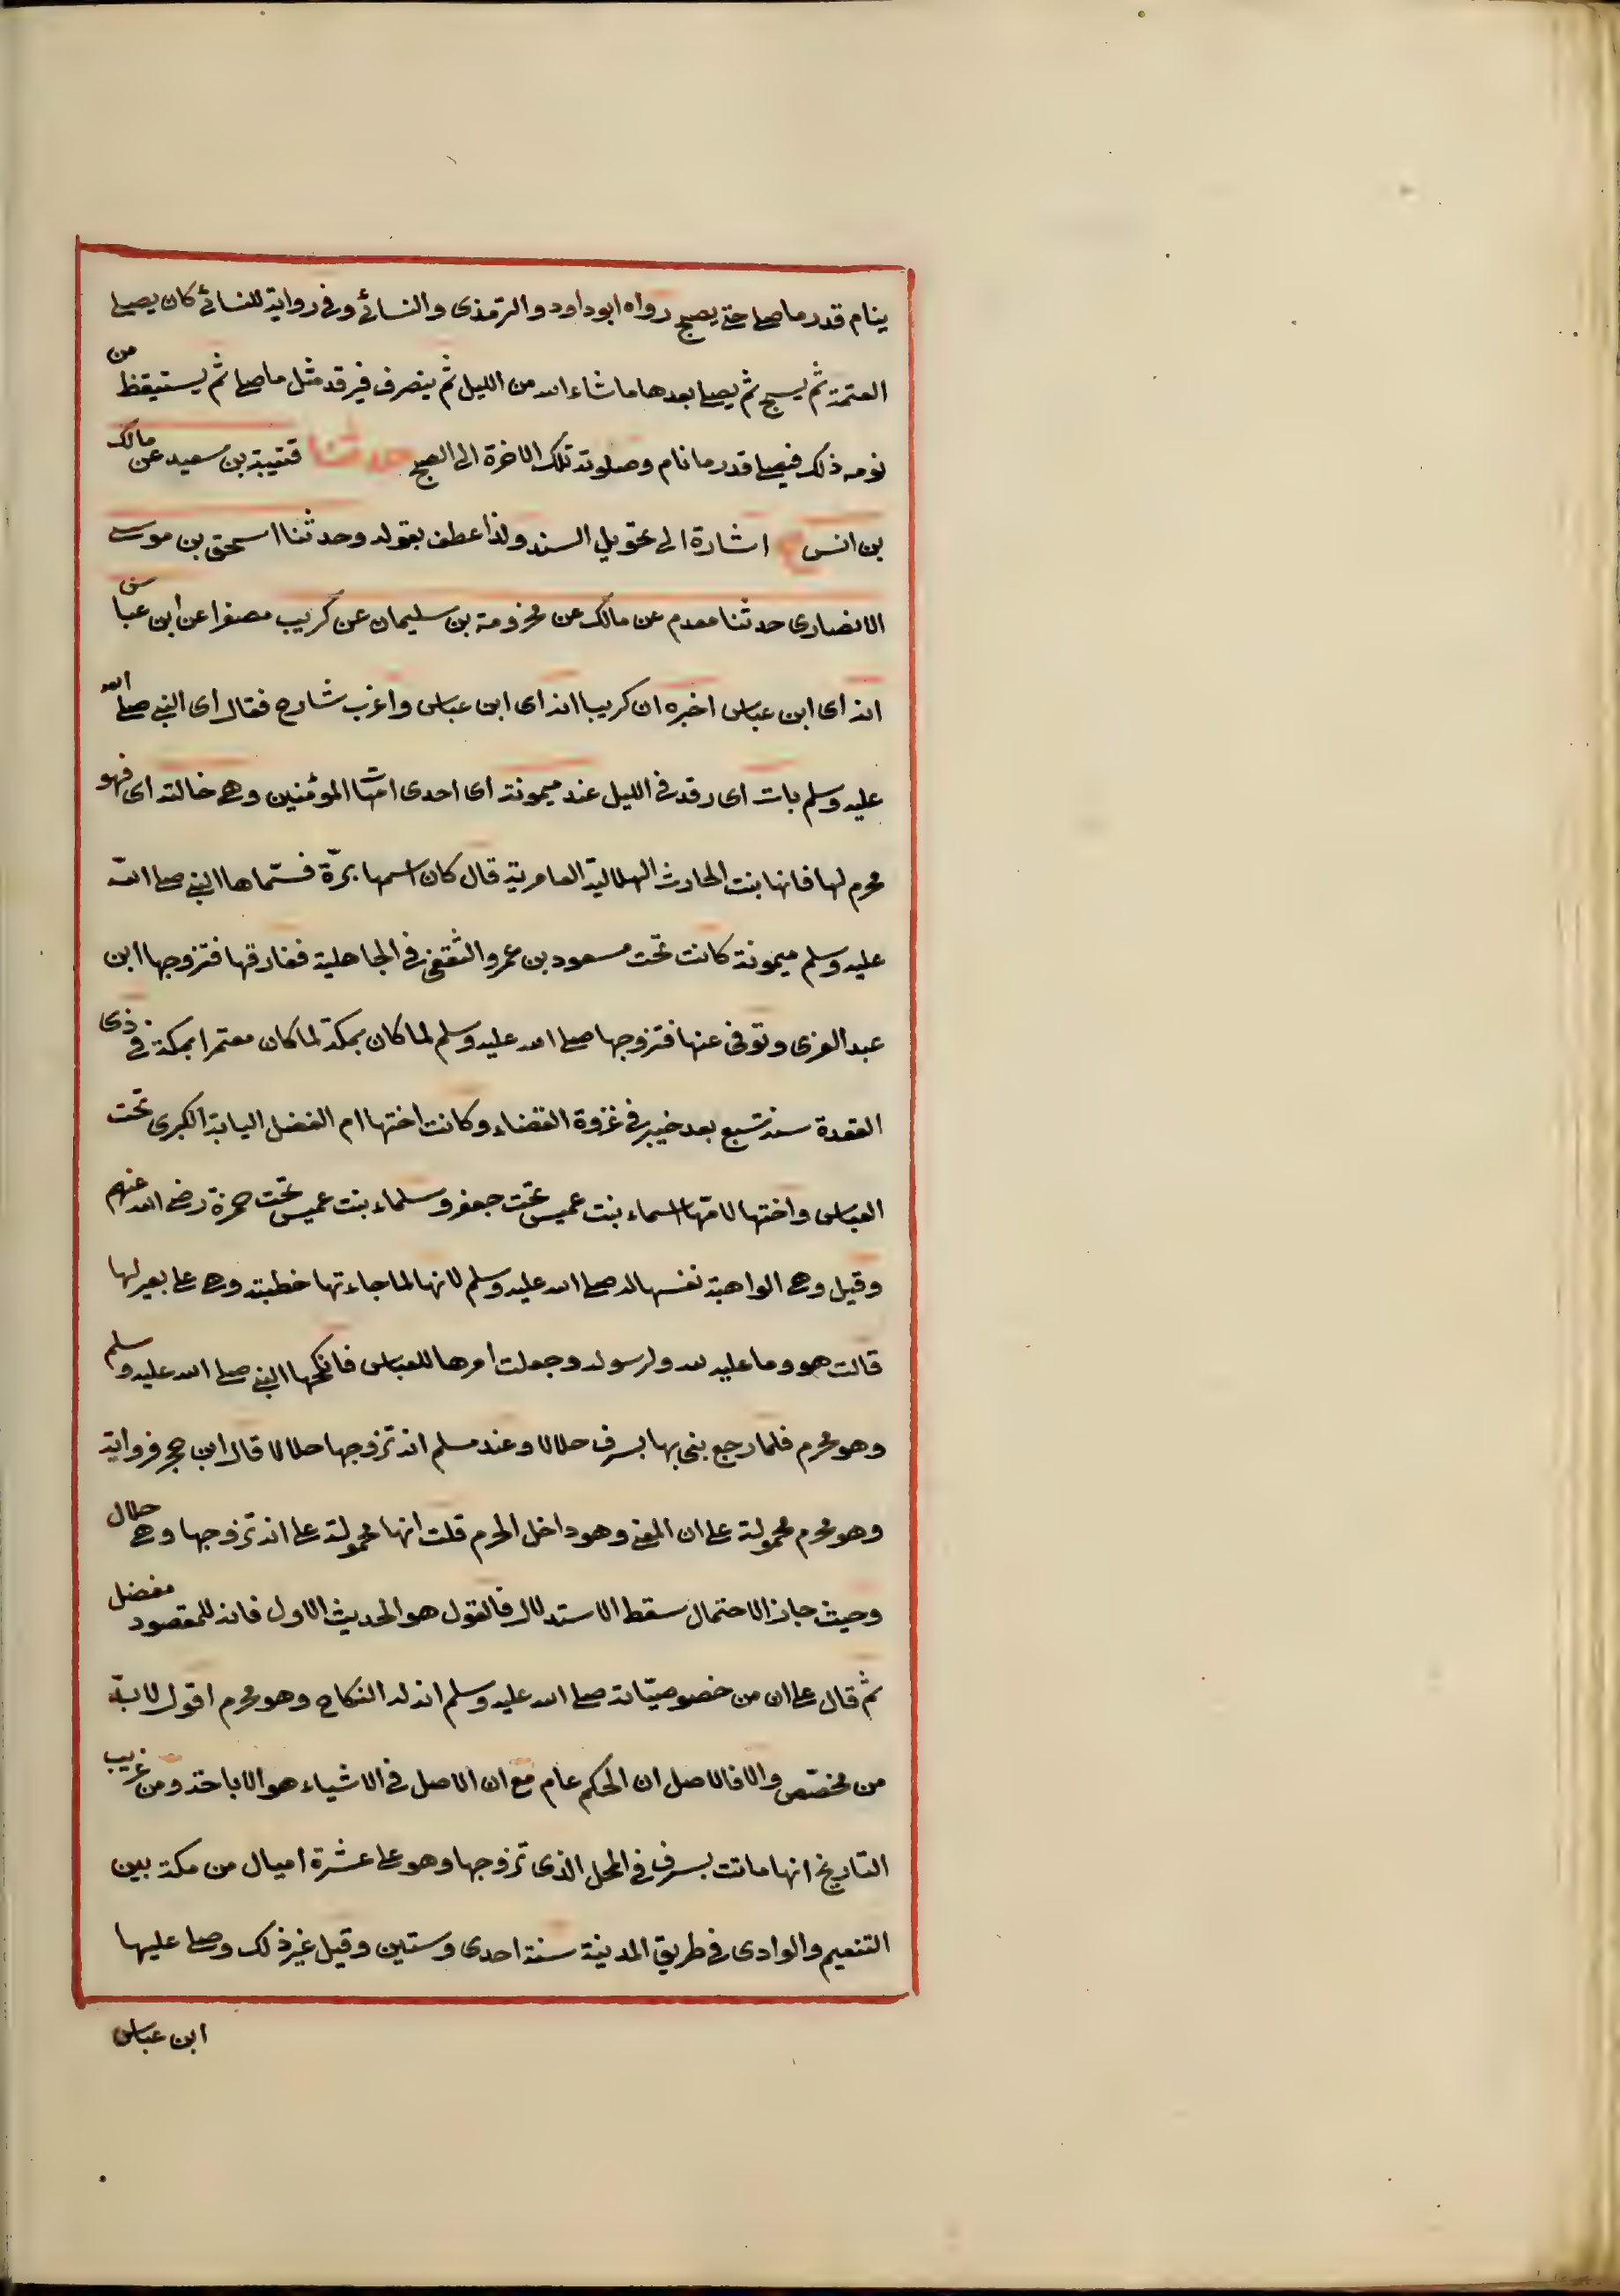 ينام قدر ما صلى حتى يصبح رواه ابو داود والترمذى والنسائى وفى رواية للنسائى كان يصلى
العتمة ثم يسبح ثم يصلى بعدها ما شاء الله من الليل ثم ينصرف فيرقد مثل ما صلى ثم يستيقظ من
نومه ذلك فيصلى قدر ما نام وصلوته تلك الاخرة الى الصبح حدثنا قتيبة بن سعيد عن مالك
بن انس ح اشارة الى تحويل السند ولذا عطف بقوله وحدثنا اسحق بن موسى
الانصارى حدثنا معدم عن مالك عن مخرومة بن سليمان عن كريب مصغرا عن ابن عباس
انه اى ابن عباس اخبره ان كريبا انه اى ابن عباس واغرب شارح فقال اى النبى صلى الله
عليه وسلم بات اى رقد فى الليل عند ميمونة اى احدى امهات المؤمنين وهى خالته اى فهو
محرم لها فانها بنت الحارث الهلالية العامرية قال كان اسمها برّة فسمّاها النبى صلى الله
عليه وسلم ميمونة كانت تحت مسعود بن عمرو الثقفى فى الجاهلية ففارقها فتزوجها ابن
عبد العزى وتوفى عنها فتزوجها صلى الله عليه وسلم لما كان بمكة لما كان معتمرا بمكة فى ذى
القعدة سنة سبع بعد خيبر فى غزوة القضاء وكانت اختها ام الفضل اليابة الكبرى تحت
العباس واختها لامّها اسماء بنت عميس تحت جعفر وسلماء بنت عميس تحت حمزة رضى الله عنهم
وقيل وهى الواهبة نفسها له صلى الله عليه وسلم لانها لما جاءتها خطبته وهى على بعير لها
قالت هو وما عليه لله ولرسوله وجعلت امرها للعباس فانكحها النبى صلى الله عليه وسلم
وهو محرم فلما رجع بنى بها بسرف حلالا وعند مسلم انه تزوجها حلالا قال ابن حجر فرواية
وهو محرم محمولة على ان المعنى وهو داخل الحرم قلت انها محمولة على انه تزوجها وهى حلال
وحيث جاز الاحتمال سقط الاستدلال فالقول هو الحديث الاول فانه للمقصود مفضل
ثم قال على ان من خصوصيّاته صلى الله عليه وسلم ان له النكاح وهو محرم اقول لا بدّ
من مخصّص والا فالاصل ان الحكم عام مع ان الاصل فى الاشياء هو الاباحة ومن غريب
التاريخ انها ماتت بسرف فى المحل الذى تزوجها وهو على عشرة اميال من مكة بين
التنعيم والوادى فى طريق المدينة سنة احدى وستين وقيل غير ذلك وصلى عليها
ابن عباس